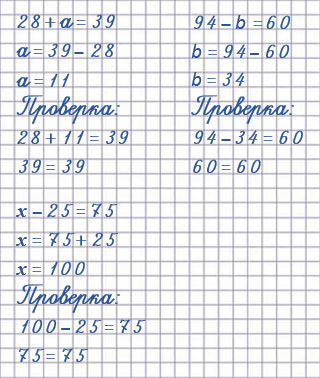 28 + а = 39
а = 39 – 28
а = 11
Проверка:
28 + 11 = 39
39 = 39
94 – b = 60
b = 94 – 60
b = 34
Проверка:
94 – 34 = 60
60 = 60
х – 25 = 75
х = 75 + 25
х = 100
Проверка:
100 – 25 = 75
75 = 75